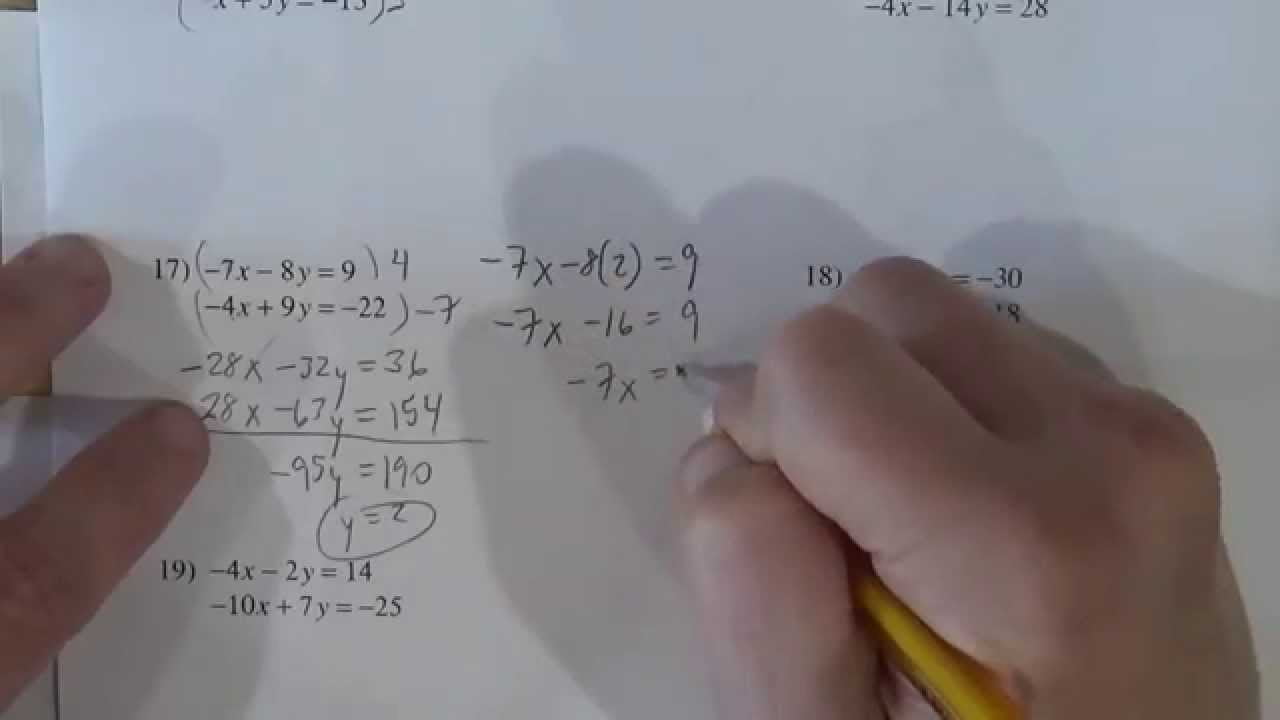 x + 5y = -15)
-4x - 14y = 28
17) (-7x - 8y = 9) 4
(-4x + 9y = -22) -7
-28x - 32y = 36
28x - 63y = 154
-95y = 190
y = 2
-7x - 8(2) = 9
-7x - 16 = 9
-7x =
18) = -30
18
19) -4x - 2y = 14
-10x + 7y = -25